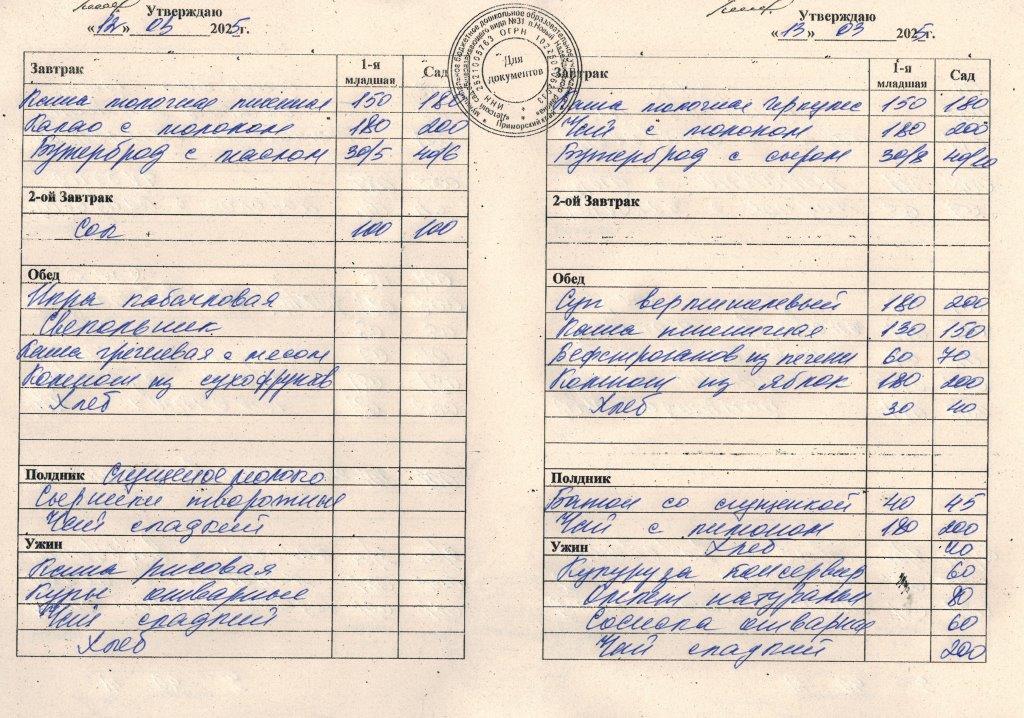 Утверждаю
«12» 03 2025г.
Завтрак 1-я младшая Сад
Каша молочная пшенная 150 180
Какао с молоком 180 200
Бутерброд с маслом 30/5 40/6
2-ой Завтрак
Сок 100 100
Обед
Икра кабачковая
Свекольник
Каша гречневая с мясом
Компот из сухофруктов
Хлеб
Полдник Сгущеное молоко
Сырники творожные
Чай сладкий
Ужин
Каша рисовая
Куры отварные
Чай сладкий
Хлеб
Для документов
Утверждаю
«13» 03 2025г.
Завтрак 1-я младшая Сад
Каша молочная Геркулес 150 180
Чай с молоком 180 200
Бутерброд с сыром 30/8 40/10
2-ой Завтрак
Обед
Суп вермишелевый 180 200
Каша пшеничная 130 150
Бефстроганов из печени 60 70
Компот из яблок 180 200
Хлеб 30 40
Полдник
Батон со сгущенкой 40 45
Чай с лимоном 180 200
Ужин Хлеб 40
Кукуруза консервир 60
Омлет натуральн 80
Сосиска отварная 60
Чай сладкий 200